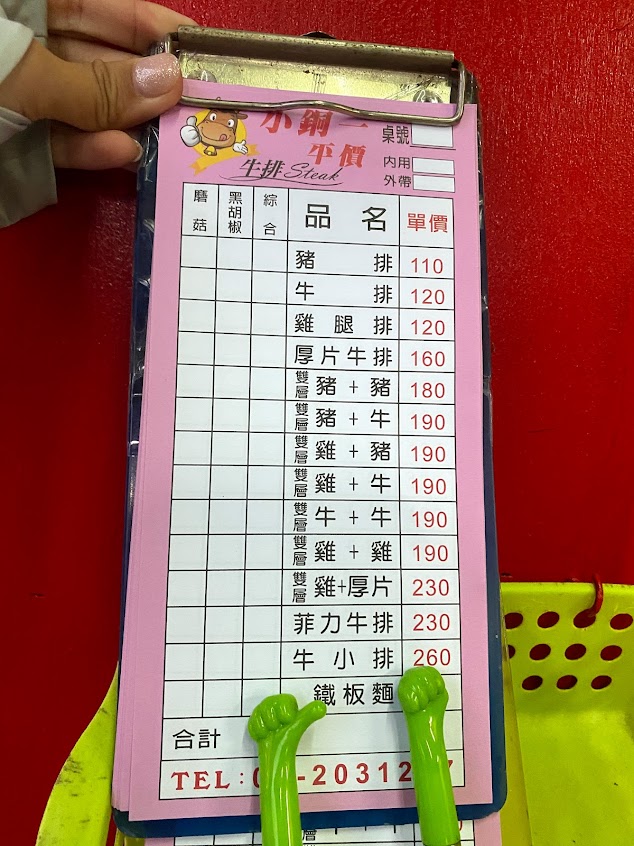 小鋼一
平價
牛排 Steak
桌號
內用
外帶
磨菇 黑胡椒 綜合 品名 單價
豬排 110
牛排 120
雞腿排 120
厚片牛排 160
雙層 豬+豬 180
雙層 豬+牛 190
雙層 雞+豬 190
雙層 雞+牛 190
雙層 牛+牛 190
雙層 雞+雞 190
雙層 雞+厚片 230
菲力牛排 230
牛小排 260
鐵板麵
合計
TEL: -2031